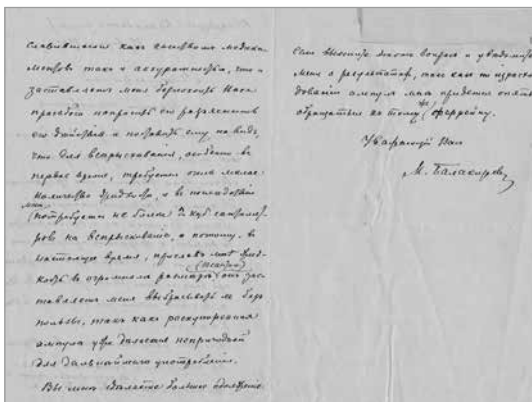 славившіяся какъ качествомъ медика-
ментовъ такъ и аккуратностью, что и
заставляетъ меня безпокоить Васъ
просьбой попросить его разъяснить
его дѣйствія и поставить ему на видъ,
что для вспрыскиванія, особенно въ
первое время, требуется очень малое
количество жидкости, и въ
мнѣ
(потребуется не болѣе куб. сантимет-
ровъ на вспрыскиваніе, а потому, въ
настоящее время, приславъ мнѣ жид-
кость въ огромномъ размѣрѣ, онъ зас-
тавляетъ меня выбрасывать ее безъ
пользы, такъ какъ раскупоренная
ампула уже дѣлается непригодной
для дальнѣйшаго употребленія.
Вы мнѣ сдѣлаете большое одолженіе
если выясните этотъ вопросъ и увѣдомите
меня о результатѣ, такъ какъ по израсхо-
дованіи ампулъ мнѣ придется опять
обращаться къ тому же Феррейну.
Уважающій Васъ
М. Балакиревъ